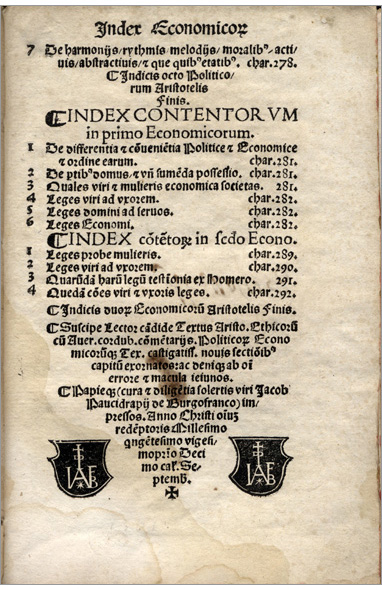 Index Economicoꝝ
7 De harmonijs/rythmis melodijs/moralibꝰ acti/
uis/abstractiuis/⁊ que quibꝰ etatibꝰ. char.278.
¶Indicis octo Politico/
rum Aristotelis
Finis.
¶INDEX CONTENTORVM
in primo Economicorum.
1 De differentia ⁊ cōueniētia Politice ⁊ Economice
⁊ ordine earum. char.281.
2 De ptibꝰ domus/⁊ vñ sumēda possessio. char.281.
3 Quales viri ⁊ mulieris economica societas. 281.
4 Leges viri ad vxorem. char.282.
5 Leges domini ad seruos. char.282.
6 Leges Economi. char.282.
¶INDEX cōtētoꝝ in scđo Econo.
1 Leges probe mulieris. char.289.
2 Leges viri ad vxorem. char.290.
3 Quarūdā harū legū testīonia ex Homero. 291.
4 Quedā cōes viri ⁊ vxoris leges. char.292.
¶Indicis duoꝝ Economicorū Aristotelis Finis.
¶Suscipe Lector cādide Textus Aristo. Ethicorū
cū Auer. cordub. cōmētarijs. Politicoꝝ Econo
micorūqꝫ Tex. castigatiss. nouis sectiōibꝰ
capitū exornatos: ac deniqꝫ ab oī
errore ⁊ macula ieiunos.
¶Papieqꝫ (cura ⁊ diligētia solertis viri Jacob
Paucidrapij de Burgofranco) im/
pressos. Anno Christi oīuꝫ
redēptoris Millesimo
qngētesimo vigesi/
mopr̄io Deci
mo cal. Se
ptemb̄.
IAB
IAB